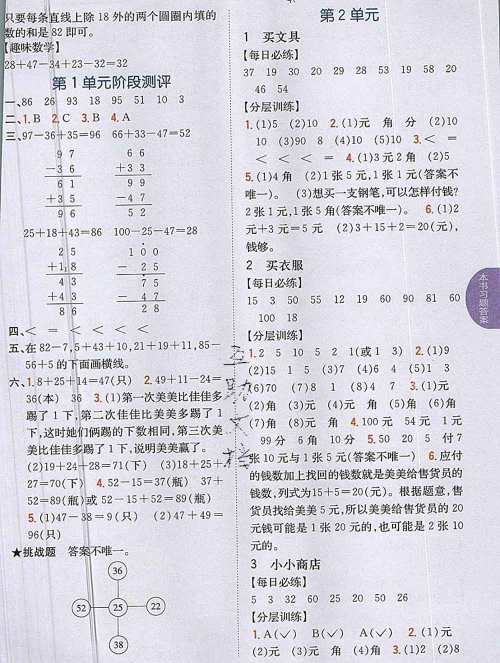 只要每条直线上除 18 外的两个圆圈内填的
数的和是 82 即可。
【趣味数学】
28+47-34+23-32=32
第 1 单元阶段测评
一、86 26 93 18 95 51 10 3
二、1. B 2. C 3. B 4. A
三、97-36+35=96 66+33-47=52
9 7 6 6
-3 6 +3 3
6 1 9 9
+3 5 -4 7
9 6 5 2
25+18+43=86 100-25-47=28
2 5 1 0 0
+1 8 - 2 5
4 3 7 5
+4 3 - 4 7
8 6 2 8
四、< = < < < <
五、在 82-7,5+43+10,21+19+11,85-
56+5 的下面画横线。
六、1. 8+25+14=47(只) 2. 49+11-24=
36(本) 36 3. (1)第一次美美比佳佳多
踢了 1 下,第二次佳佳比美美多踢了 1
下,这时她们俩踢的下数相同,第三次美
美比佳佳多踢了 1 下,说明美美赢了。
(2)19+24+28=71(下) (3)18+25+
27=70(下) 4. 52-15=37(瓶) 37+
52=89(瓶)或 52-15+52=89(瓶)
5. (1)47-38=9(只) (2)47+49=
96(只)
★挑战题 答案不唯一。
36
52 25 22
38
第 2 单元
1 买文具
【每日必练】
37 19 30 20 29 28 53 19 58 20
46 54
【分层训练】
1. (1)5 (2)10 2. (1)元 角 分 (2)10
10 (3)90 8 (4)10 (5)10 3. < =
< < < = 4. (1)3 元 2 角 (2)5
5. (1)4 角 (2)1 张 5 元,1 张 1 元(答案不
唯一)。 (3)想买一支钢笔,可以怎样付钱?
2 张 1 元,1 张 5 角(答案不唯一)。 6. (1)2
元+3 元=5 元 (2)3+15+2=20(元),
钱够。
2 买衣服
【每日必练】
15 3 50 55 12 19 60 90 81 60
100 18
【分层训练】
1. 2 5 10 5 2 1(或 1 3) 2. (1)9
(2)15 1 5 (3)7 (4)6 4 (5)1 3
(6)70 (7)8 1 (8)4 7 3. (1)元
(2)角 (3)元 (4)元 角 (5)角 (6)角
(7)角 (8)元 角 4. 100 元 54 元 1 元
99 分 6 角 10 分 5. 50 20 5 付 7
张 10 元与 1 张 5 元(答案不唯一) 6. 应付
的钱数加上找回的钱数就是美美给售货员的
钱数,列式为15+5=20(元)。根据题意,售
货员找给美美 5 元,所以美美给售货员的 20
元钱可能是 1 张 20 元的,也可能是 2 张 10
元的。
3 小小商店
【每日必练】
5 3 32 60 25 20 50 26
【分层训练】
1. A(✓) B(✓) A(✓) 2. (1)元
(2)元 (3)元 角 (4)角 3. (1)2 (2)8
本书习题答案